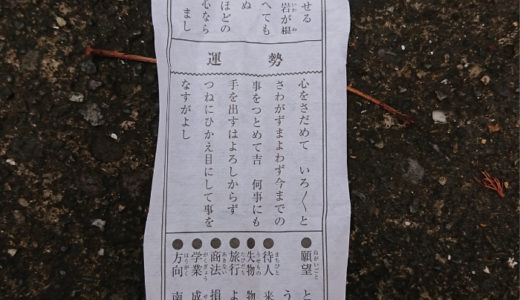 せる
岩が根
へても
ぬ
ほどの
心なら
まし
運勢
心をさだめて いろ〱と
さわがずまよわず今までの
事をつとめて吉 何事にも
手を出すはよろしからず
つねにひかえ目にして事を
なすがよし
●願望 と
う
●待人 来
●失物 物
●旅行 よ
●商法 損
●学業 成
●方向 南